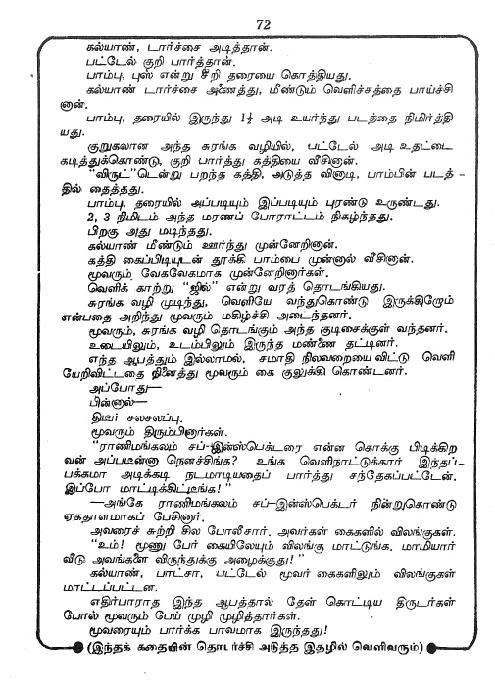 72
கல்யாண், டார்ச்சை அடித்தான்.
பட்டேல் குறி பார்த்தான்.
பாம்பு, புஸ் என்று சீறி தரையை கொத்தியது.
கல்யாண் டார்ச்சை அணைத்து, மீண்டும் வெளிச்சத்தை பாய்ச்சி
னான்.
பாம்பு, தரையில் இருந்து 1½ அடி உயர்ந்து படத்தை நிமிர்த்தி
யது.
குறுகலான அந்த சுரங்க வழியில், பட்டேல் அடி உதட்டை
கடித்துக்கொண்டு, குறி பார்த்து கத்தியை வீசினான்.
"விருட்"டென்று பறந்த கத்தி, அடுத்த வினாடி, பாம்பின் படத் -
தில் தைத்தது.
பாம்பு, தரையில் அப்படியும் இப்படியும் புரண்டு உருண்டது.
2, 3 நிமிடம் அந்த மரணப் போராட்டம் நிகழ்ந்தது.
பிறகு அது மடிந்தது.
கல்யாண் மீண்டும் ஊர்ந்து முன்னேறினான்.
கத்தி கைப்பிடியுடன் தூக்கி பாம்பை முன்னால் வீசினான்.
மூவரும் வேகவேகமாக முன்னேறினார்கள்.
வெளிக் காற்று, "ஜில்" என்று வரத் தொடங்கியது.
சுரங்க வழி முடிந்து, வெளியே வந்துகொண்டு இருக்கிறோம்
என்பதை அறிந்து மூவரும் மகிழ்ச்சி அடைந்தனர்.
மூவரும், சுரங்க வழி தொடங்கும் அந்த குடிசைக்குள் வந்தனர்.
உடையிலும், உடம்பிலும் இருந்த மண்ணை தட்டினர்.
எந்த ஆபத்தும் இல்லாமல், சமாதி நிலவறையை விட்டு வெளி
யேறிவிட்டதை நினைத்து மூவரும் கை குலுக்கி கொண்டனர்.
அப்போது—
பின்னால்—
திடீர் சலசலப்பு.
மூவரும் திரும்பினார்கள்.
"ராணிமங்கலம் சப்-இன்ஸ்பெக்டரை என்ன சொக்கு பிடிக்கிற
வன் அப்படீன்னா நெனச்சிங்க? உங்க வெளிநாட்டுக்கார் இந்தப்-
பக்கமா அடிக்கடி நடமாடியதைப் பார்த்து சந்தேகப்பட்டேன்.
இப்போ மாட்டிக்கிட்டீங்க!"
—அங்கே ராணிமங்கலம் சப்-இன்ஸ்பெக்டர் நின்றுகொண்டு
ஏகதாளமாகப் பேசினார்.
அவரைச் சுற்றி சில போலீசார். அவர்கள் கைகளில் விலங்குகள்.
"உம்! மூணு பேர் கையிலேயும் விலங்கு மாட்டுங்க. மாமியார்
வீடு அவங்களை விருந்துக்கு அழைக்குது!"
கல்யாண், பாட்சா, பட்டேல் மூவர் கைகளிலும் விலங்குகள்
மாட்டப்பட்டன.
எதிர்பாராத இந்த ஆபத்தால் தேள் கொட்டிய திருடர்கள்
போல் மூவரும் பேய் முழி முழித்தார்கள்.
மூவரையும் பார்க்க பாவமாக இருந்தது!
(இந்தக் கதையின் தொடர்ச்சி அடுத்த இதழில் வெளிவரும்)